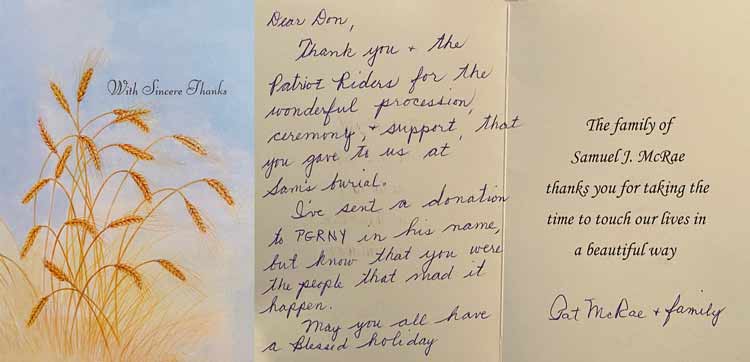 With Sincere Thanks
Dear Don,
Thank you + the
Patriot Riders for the
wonderful procession,
ceremony + support, that
you gave to us at
Sam's burial.
I've sent a donation
to PGRNY in his name,
but know that you were
the people that mad it
happen.
May you all have
a Blessed holiday
The family of
Samuel J. McRae
thanks you for taking the
time to touch our lives in
a beautiful way
Pat McRae + family